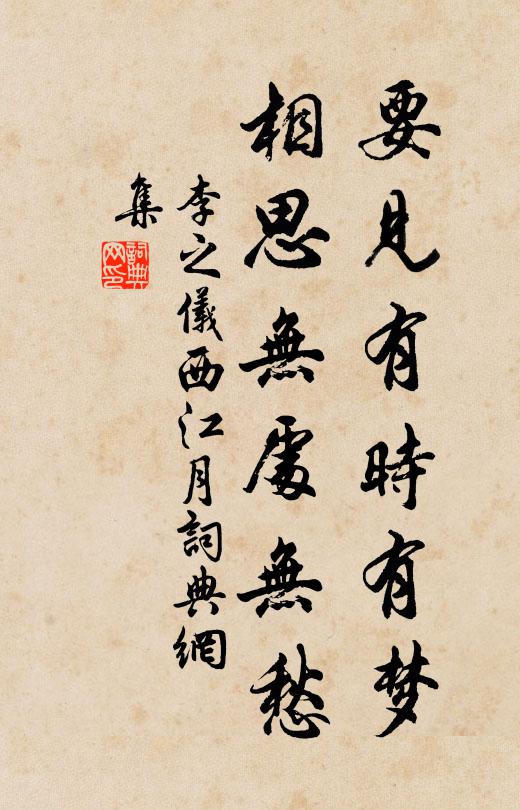 要見有時有梦
相思無處無愁
李之儀西江月詞典網
集
詞典
网印